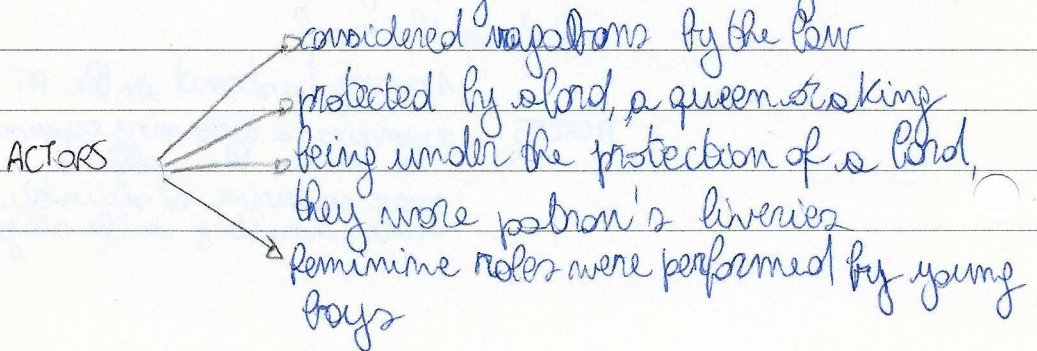 considered vagabons by the law
protected by a lord, a queen or a king
ACTORS
being under the protection of a lord,
they wore patron's liveries
feminine roles were performed by young
boys